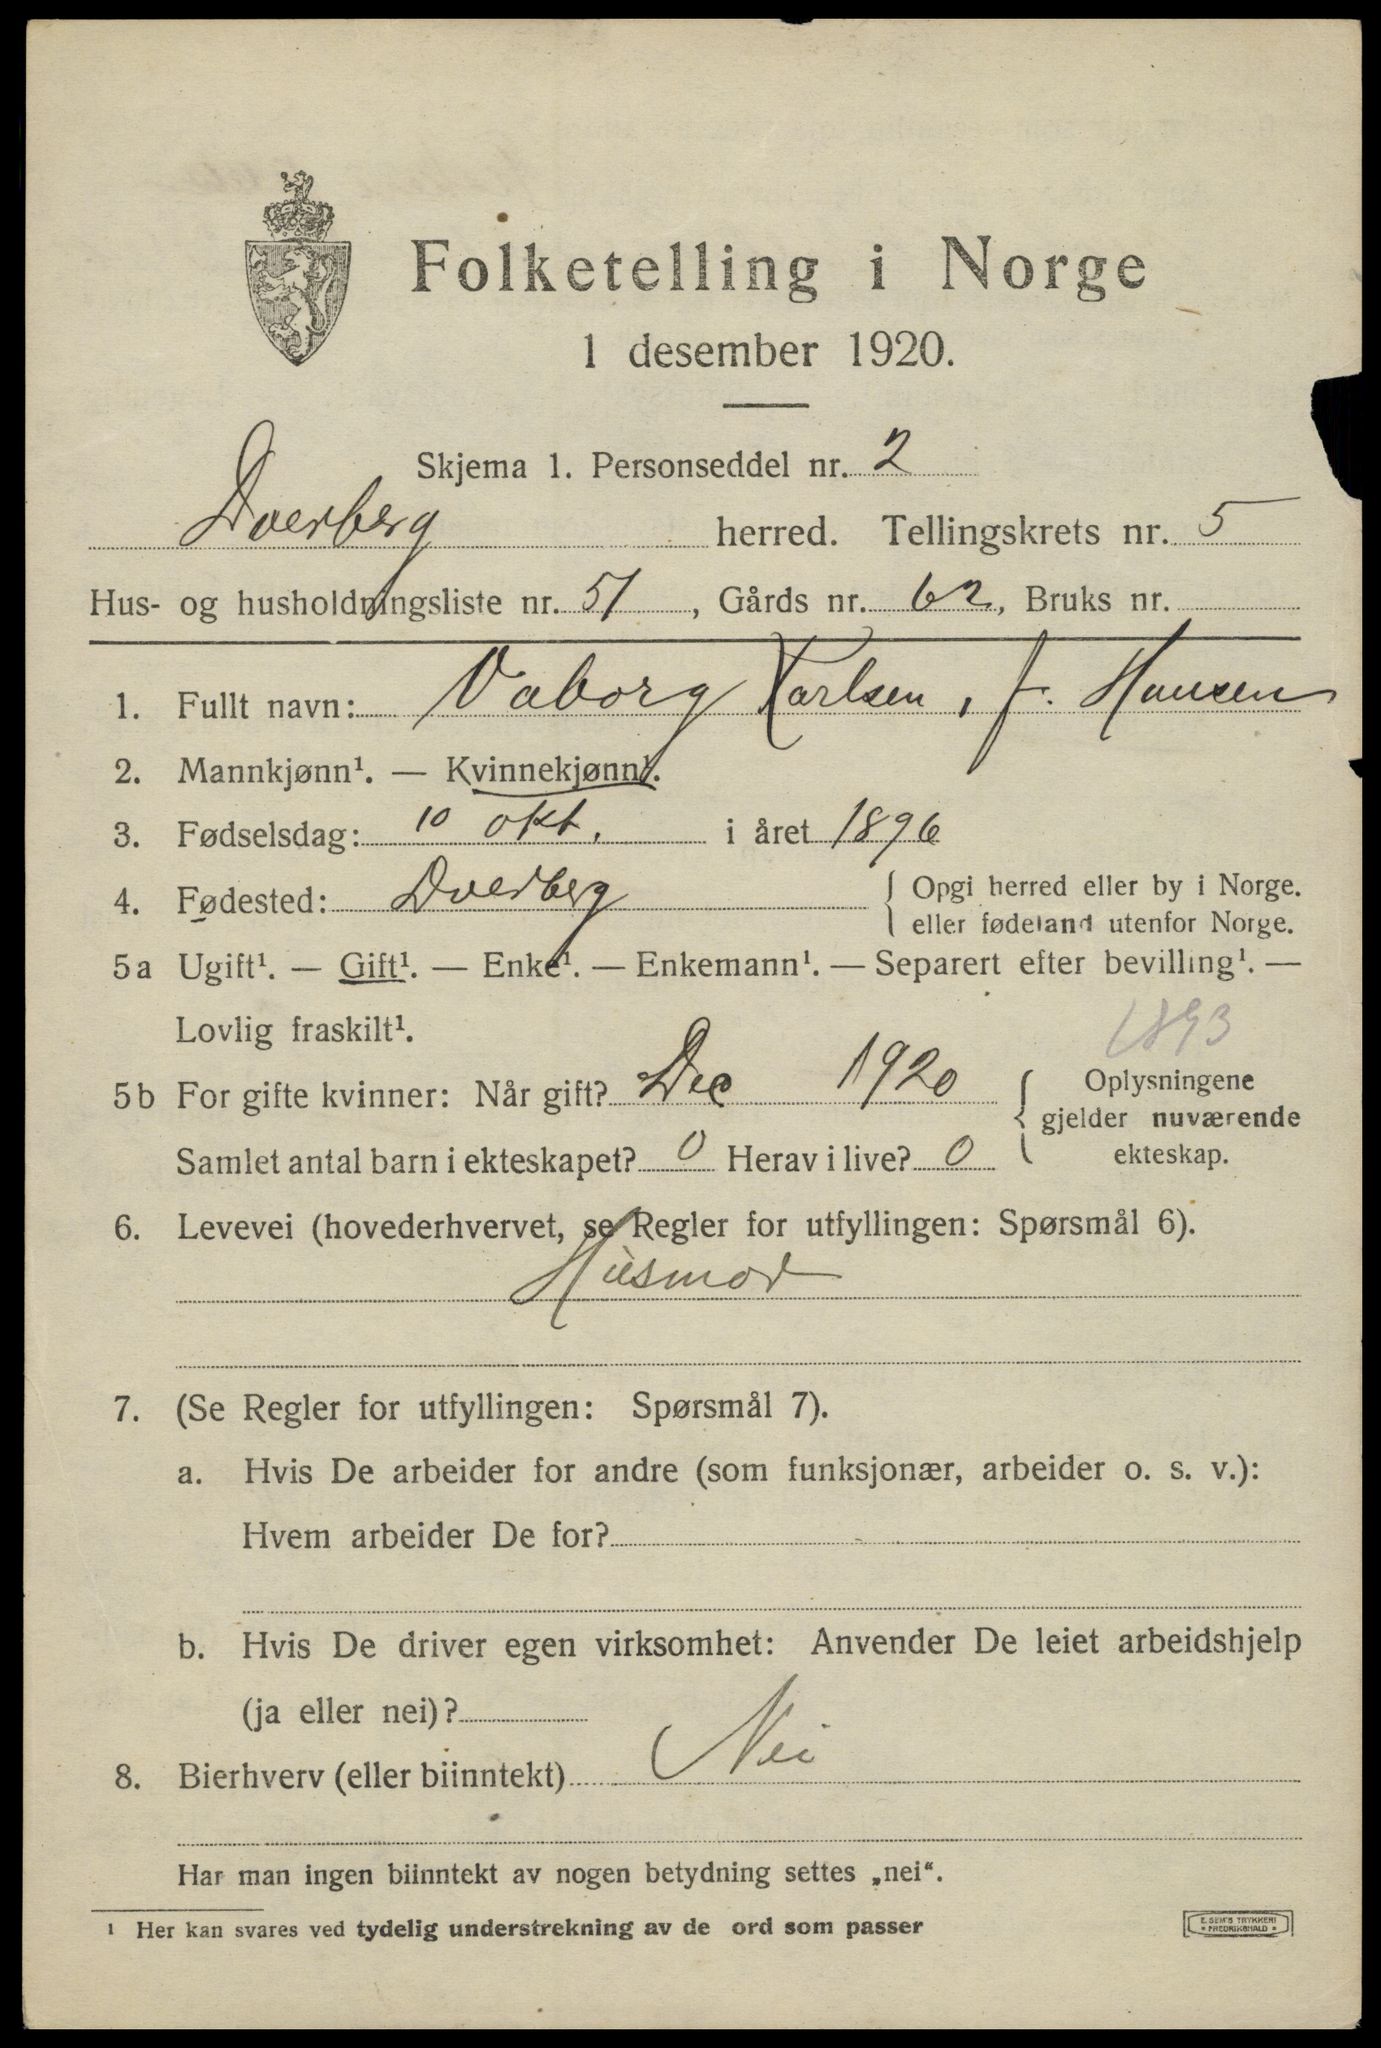 Folketelling i Norge
1 desember 1920.
Skjema 1. Personseddel nr. 2
Dverberg herred. Tellingskrets nr. 5
Hus- og husholdningsliste nr. 51, Gårds nr. 62, Bruks nr.
1. Fullt navn: Vaborg Karlsen, f. Hansen
2. Mannkjønn¹. — Kvinnekjønn¹.
3. Fødselsdag: 10 okt. i året 1896
4. Fødested: Dverberg { Opgi herred eller by i Norge.
eller fødeland utenfor Norge.
5a Ugift¹. — Gift¹. — Enke¹. — Enkemann¹. — Separert efter bevilling¹. —
Lovlig fraskilt¹.
1893
5b For gifte kvinner: Når gift? Dec 1920 { Oplysningene
gjelder nuværende
Samlet antal barn i ekteskapet? 0 Herav i live? 0 ekteskap.
6. Levevei (hovederhvervet, se Regler for utfyllingen: Spørsmål 6).
Husmor
7. (Se Regler for utfyllingen: Spørsmål 7).
a. Hvis De arbeider for andre (som funksjonær, arbeider o. s. v.):
Hvem arbeider De for?
b. Hvis De driver egen virksomhet: Anvender De leiet arbeidshjelp
(ja eller nei)?
8. Bierhverv (eller biinntekt) Nei
Har man ingen biinntekt av nogen betydning settes „nei“.
¹ Her kan svares ved tydelig understrekning av de ord som passer
E. SEM'S TRYKKERI
* FREDRIKSHALD *